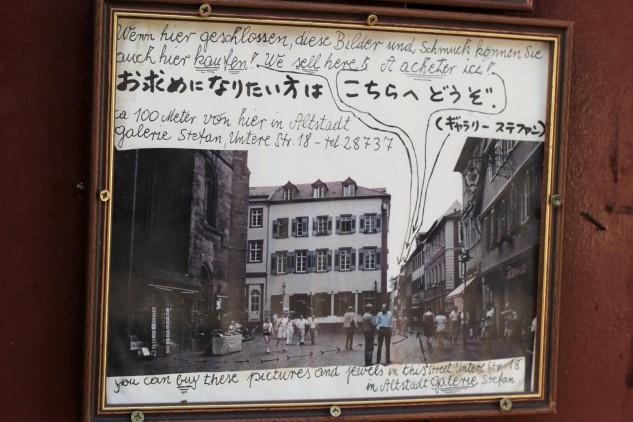 Wenn hier geschlossen, diese Bilder und Schmuck können Sie
auch hier kaufen! We sell here! A acheter ici!
お求めになりたい方は こちらへ どうぞ.
(ギャラリー ステファン)
ca 100 Meter von hier in Altstadt
Galerie Stefan, Untere Str. 18 - tel 28737
you can buy these pictures and jewels in this street Untere Str. 18
in Altstadt Galerie Stefan